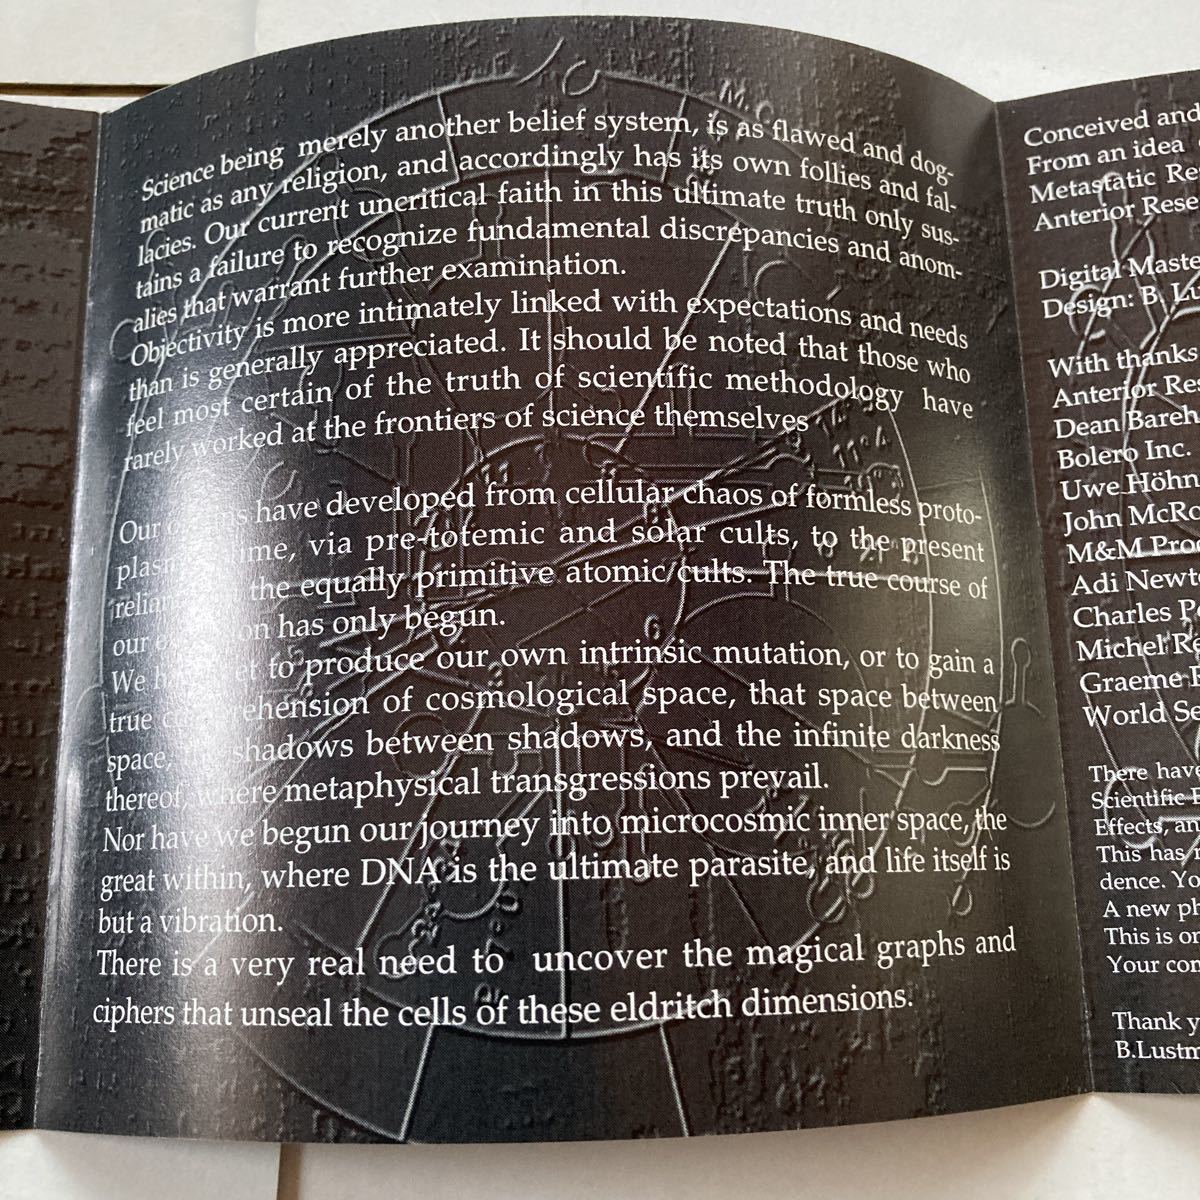 Science being merely another belief system, is as flawed and dog-
matic as any religion, and accordingly has its own follies and fal-
lacies. Our current uncritical faith in this ultimate truth only sus-
tains a failure to recognize fundamental discrepancies and anom-
alies that warrant further examination.
Objectivity is more intimately linked with expectations and needs
than is generally appreciated. It should be noted that those who
feel most certain of the truth of scientific methodology have
rarely worked at the frontiers of science themselves
Our have developed from cellular chaos of formless proto-
via pre-totemic and solar cults, to the present
the equally primitive atomic cults. The true course of
our has only begun.
We to produce our own intrinsic mutation, or to gain a
true of cosmological space, that space between
space, shadows between shadows, and the infinite darkness
thereof, where metaphysical transgressions prevail.
Nor have we begun our journey into microcosmic inner space, the
great within, where DNA is the ultimate parasite, and life itself is
but a vibration.
There is a very real need to uncover the magical graphs and
ciphers that unseal the cells of these eldritch dimensions.
Conceived and
From an idea
Metastatic
Anterior
Digital
Design: B.
With thanks
Anterior
Dean
Bolero Inc.
Uwe
John
M&M
Adi
Charles
Michel
Graeme
World
There have
Scientific
Effects,
This has
dence.
A new
This is
Your
Thank